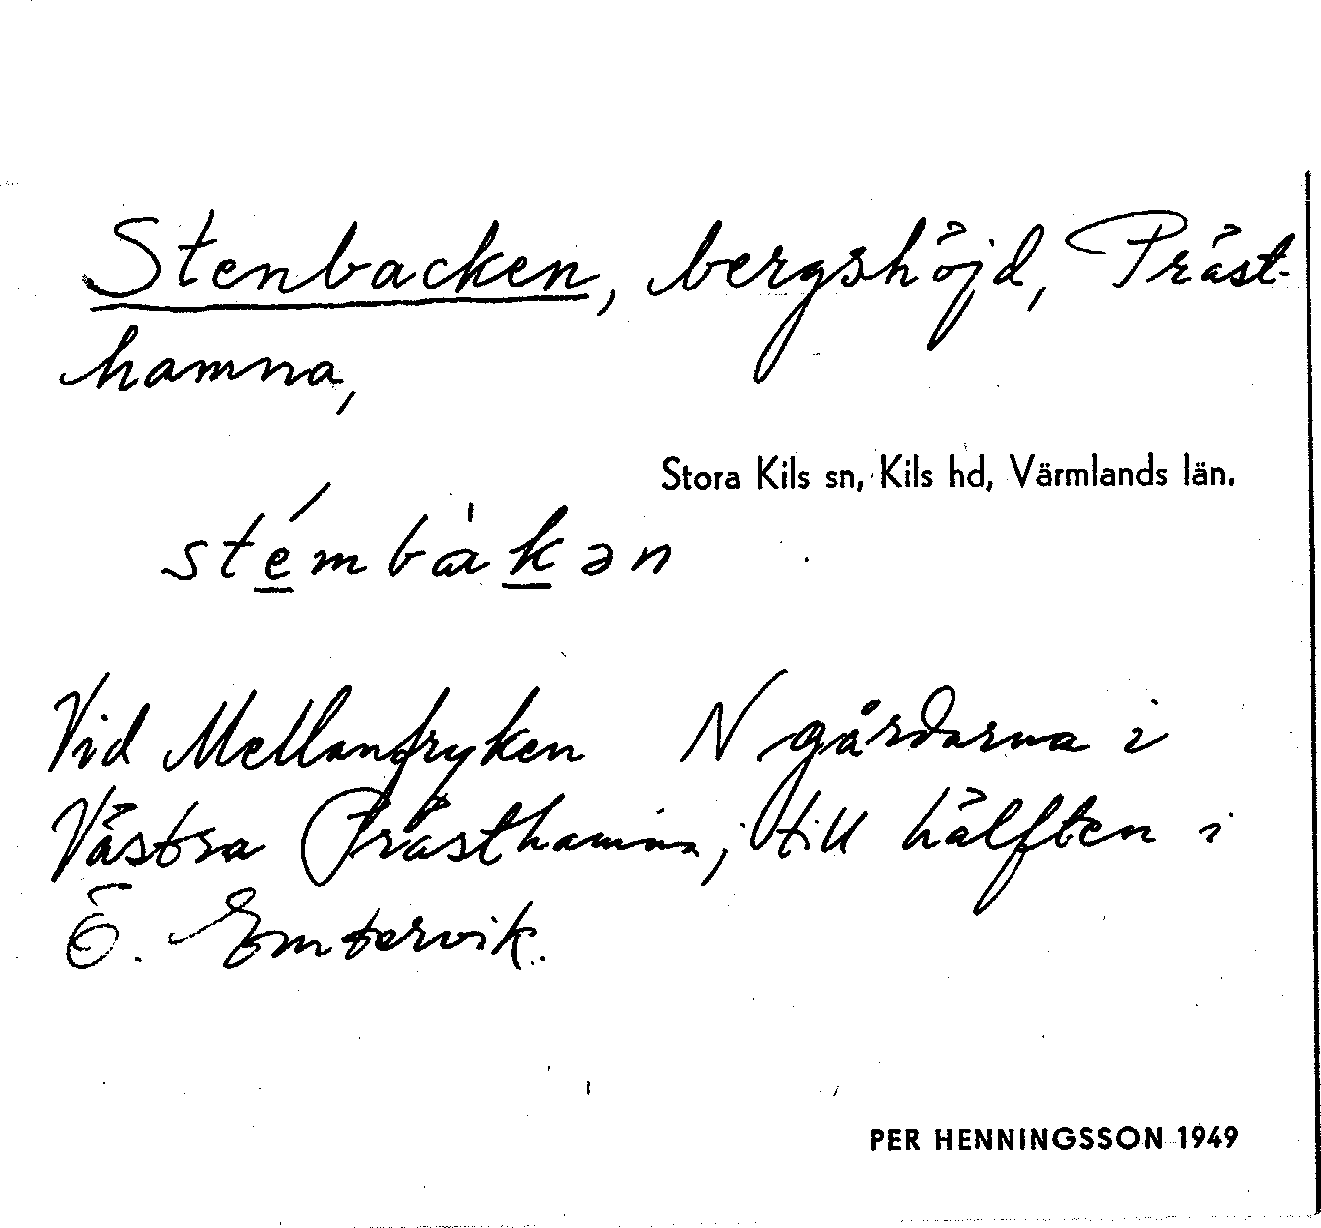 Stenbacken, bergshöjd, Präst-
hamna,
Stora Kils sn, Kils hd, Värmlands län.
stémbàkən
Vid Mellanfryken N gårdarna i
Västra Prästhamna; till hälften i
Ö. Emtervik.
PER HENNINGSSON 1949